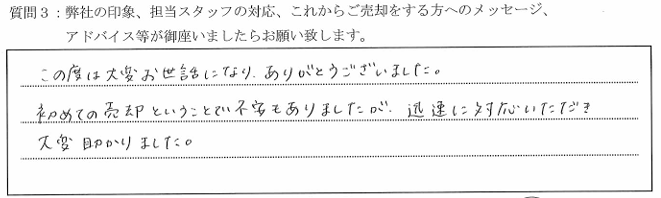 質問３：弊社の印象、担当スタッフの対応、これからご売却をする方へのメッセージ、
アドバイス等が御座いましたらお願い致します。
この度は大変お世話になり、ありがとうございました。
初めての売却ということで不安もありましたが、迅速に対応いただき
大変助かりました。